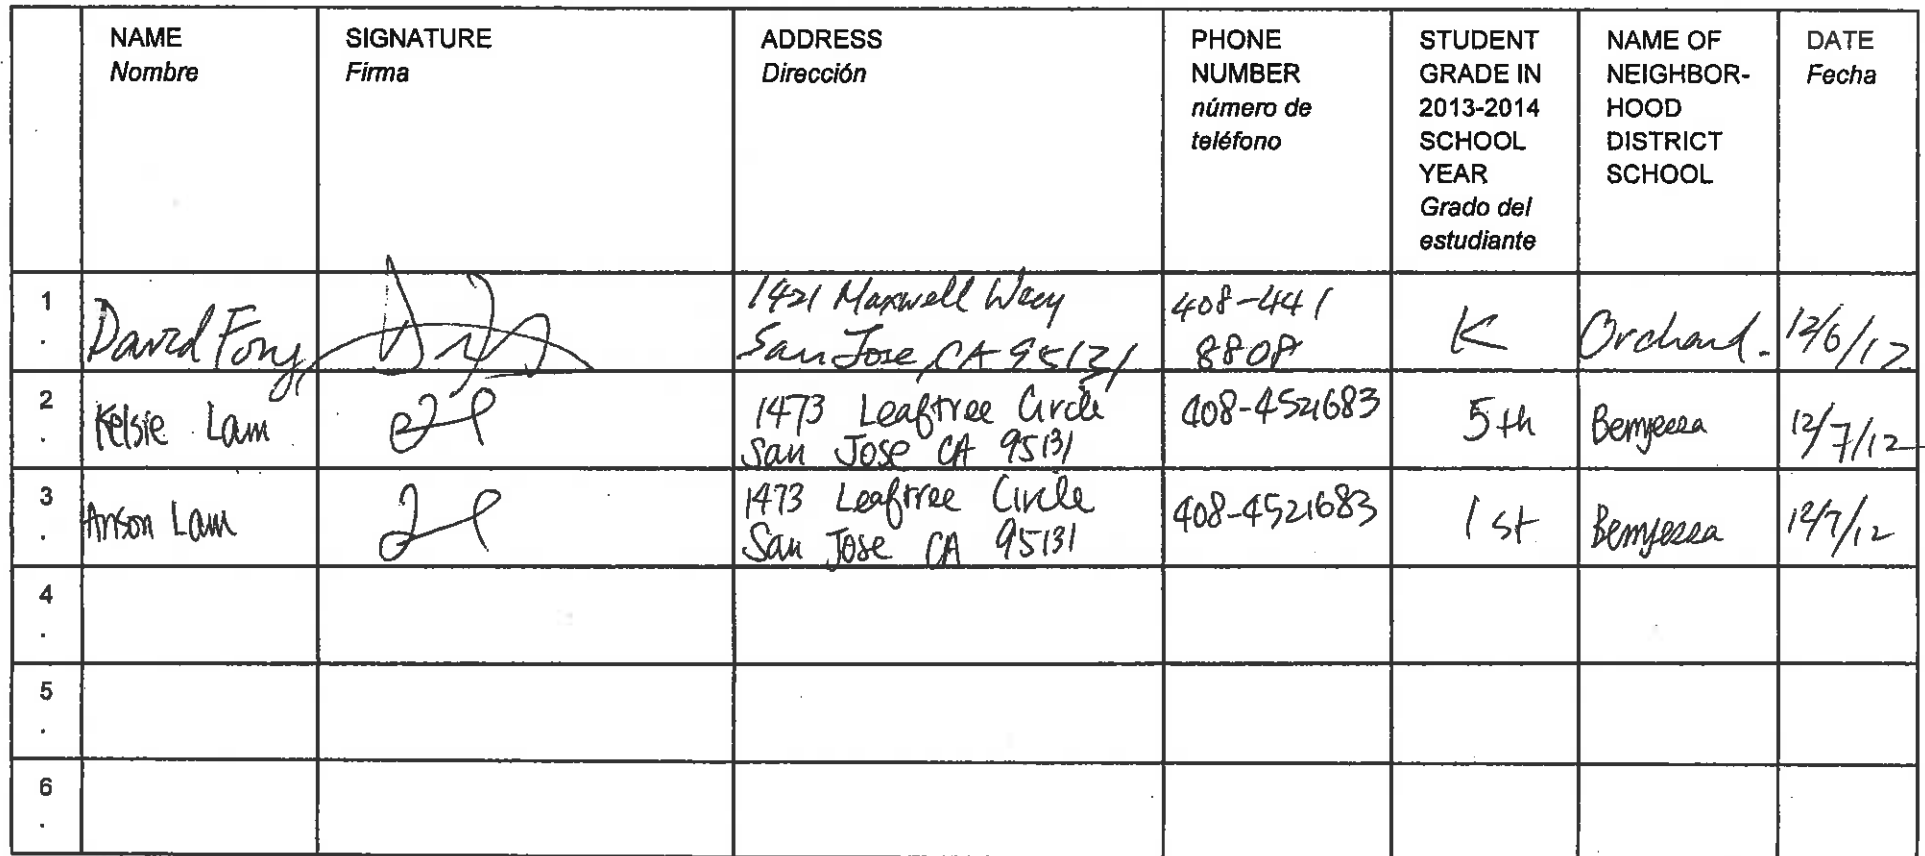 NAME
Nombre
SIGNATURE
Firma
ADDRESS
Dirección
PHONE
NUMBER
número de
teléfono
STUDENT
GRADE IN
2013-2014
SCHOOL
YEAR
Grado del
estudiante
NAME OF
NEIGHBOR-
HOOD
DISTRICT
SCHOOL
DATE
Fecha
1
.
David Fong
1421 Maxwell Way
San Jose, CA 95131
408-441
8808
K
Orchard.
12/6/12
2
.
Kelsie Lam
1473 Leaftree Circle
San Jose CA 95131
408-4521683
5th
12/7/12
3
.
Anson Lam
1473 Leaftree Circle
San Jose CA 95131
408-4521683
1st
12/7/12
4
.
5
.
6
.